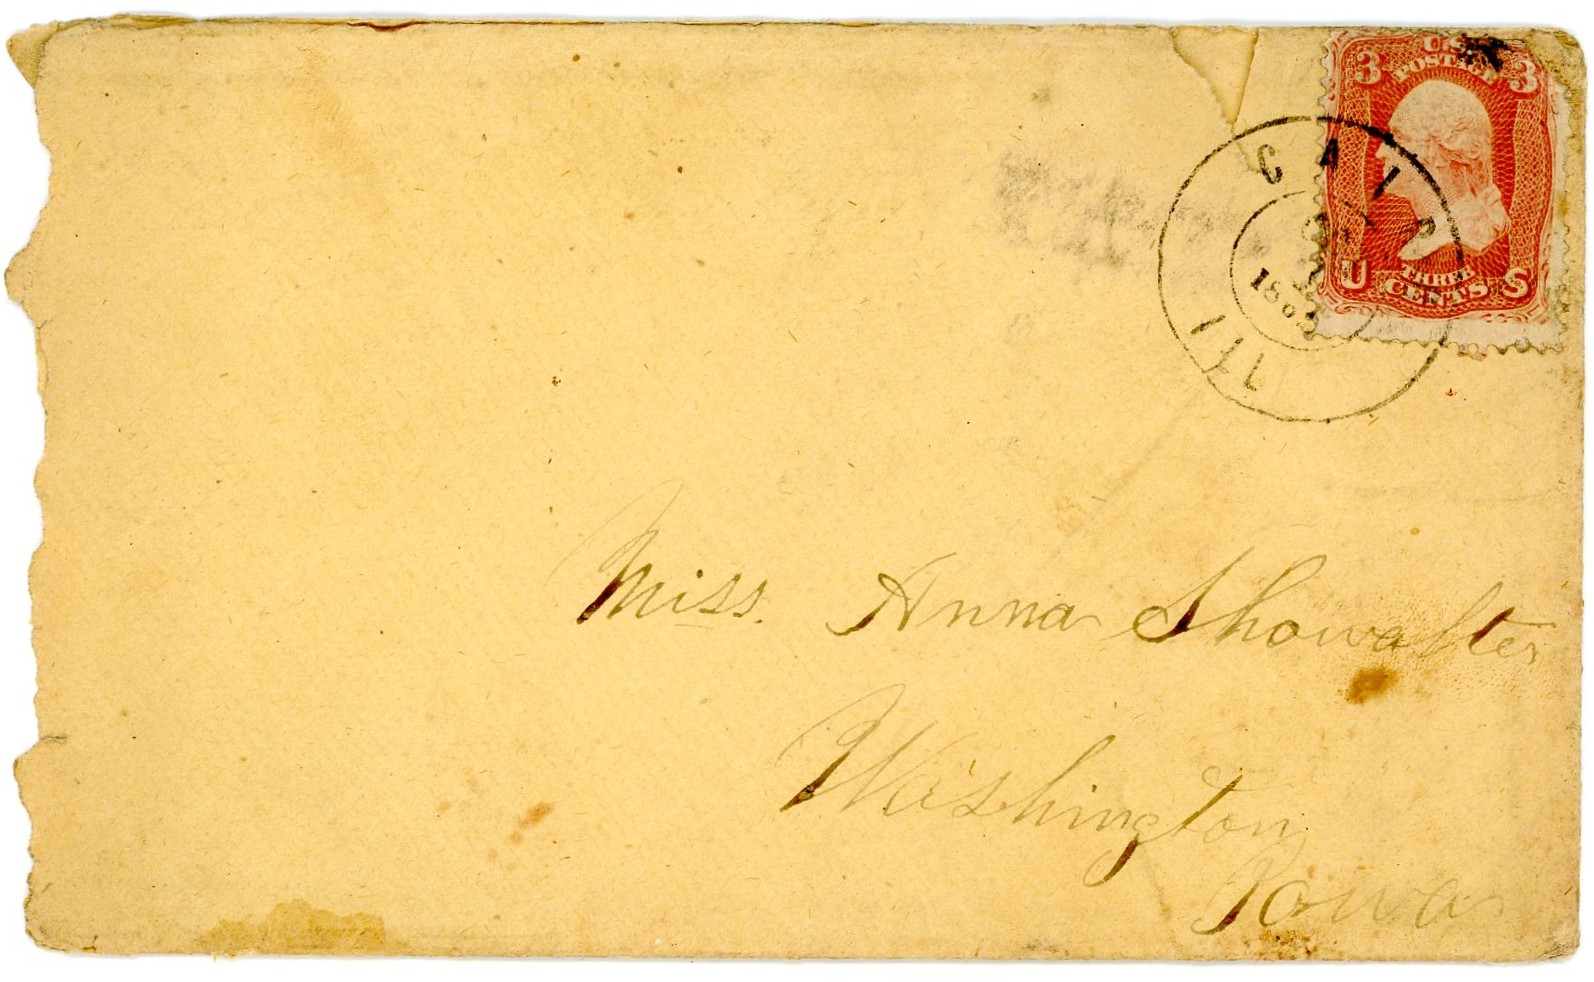 U.S.
3 POSTAGE 3
U THREE CENTS S
CAIR
ILL
Miss. Anna Showalter
Washington
Iowa